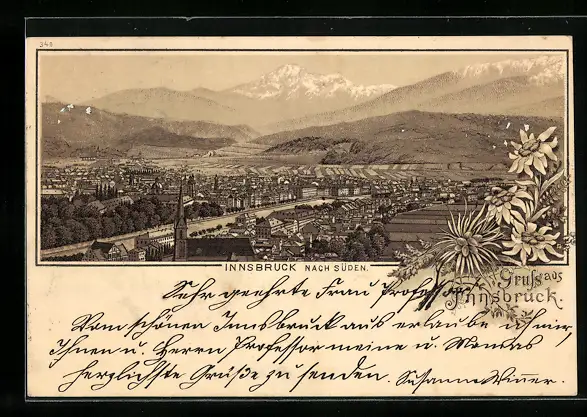 346
INNSBRUCK NACH SÜDEN.
Gruß aus
Innsbruck.
Sehr geehrte Frau Professor
Vom schönen Innsbruck aus erlaube ich mir,
Ihnen u. Herrn Professor meine u. Mamas
herzlichste Grüße zu senden. Susanne Winer.